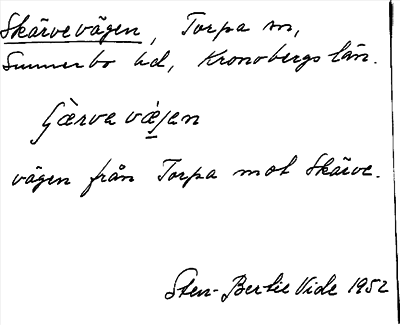 Skärvevägen, Torpa sn,
Sunnerbo hd, Kronobergs län.
Gærva væjen
vägen från Torpa mot Skärve.
Sten-Bertil Vide 1952